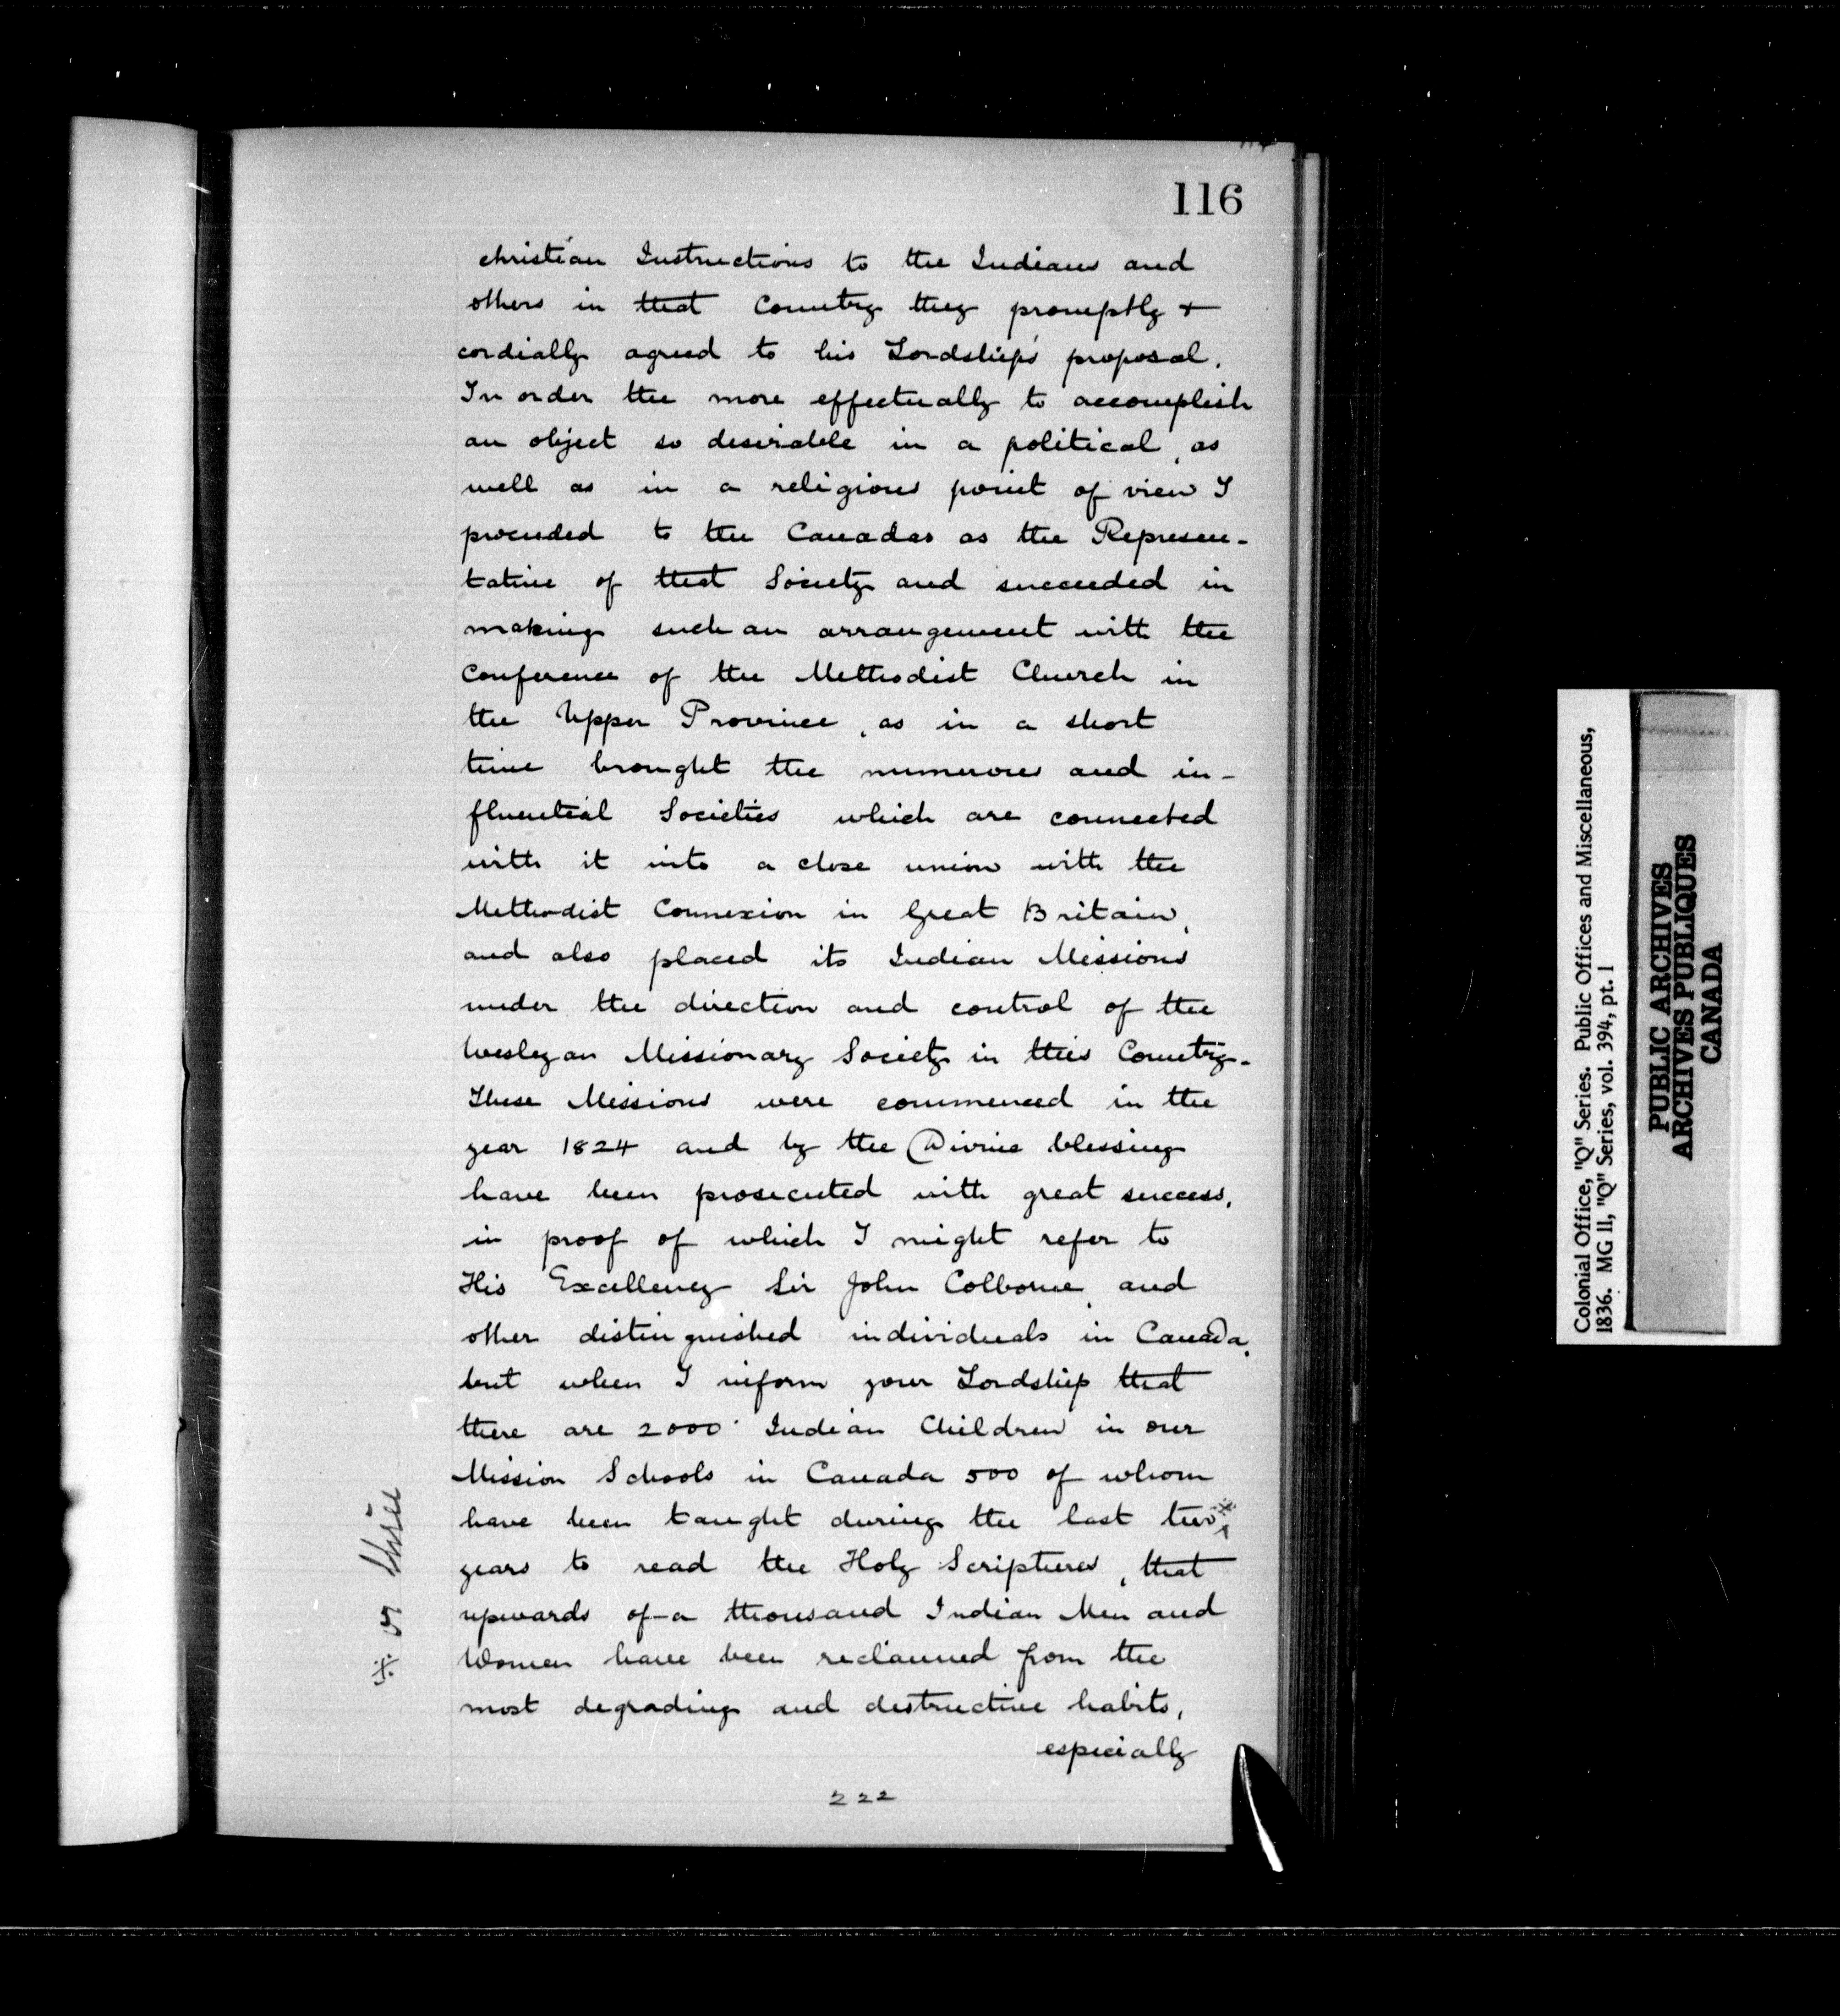 116
christian Instructions to the Indians and
others in that Country they promptly +
cordially agreed to his Lordship's proposal.
In order the more effectually to accomplish
an object so desirable in a political, as
well as in a religious point of view I
proceeded to the Canadas as the Represen-
tative of that Society and succeeded in
making such an arrangement with the
Conference of the Methodist Church in
the Upper Province, as in a short
time brought the numerous and in-
fluential Societies which are connected
with it into a close union with the
Methodist Connexion in Great Britain,
and also placed its Indian Missions
under the direction and control of the
Wesleyan Missionary Society in this Country.
These Missions were commenced in the
year 1824 and by the Divine blessing
have been prosecuted with great success,
in proof of which I might refer to
His Excellency Sir John Colborne, and
other distinguished individuals in Canada,
but when I inform your Lordship that
there are 2000 Indian Children in our
Mission Schools in Canada 500 of whom
have been taught during the last two*
years to read the Holy Scriptures, that
upwards of a thousand Indian Men and
Women have been reclaimed from the
most degrading and destructive habits,
especially
222
* or three
Colonial Office, "Q" Series. Public Offices and Miscellaneous,
1836. MG 11, "Q" Series, vol. 394, pt. 1
PUBLIC ARCHIVES
ARCHIVES PUBLIQUES
CANADA